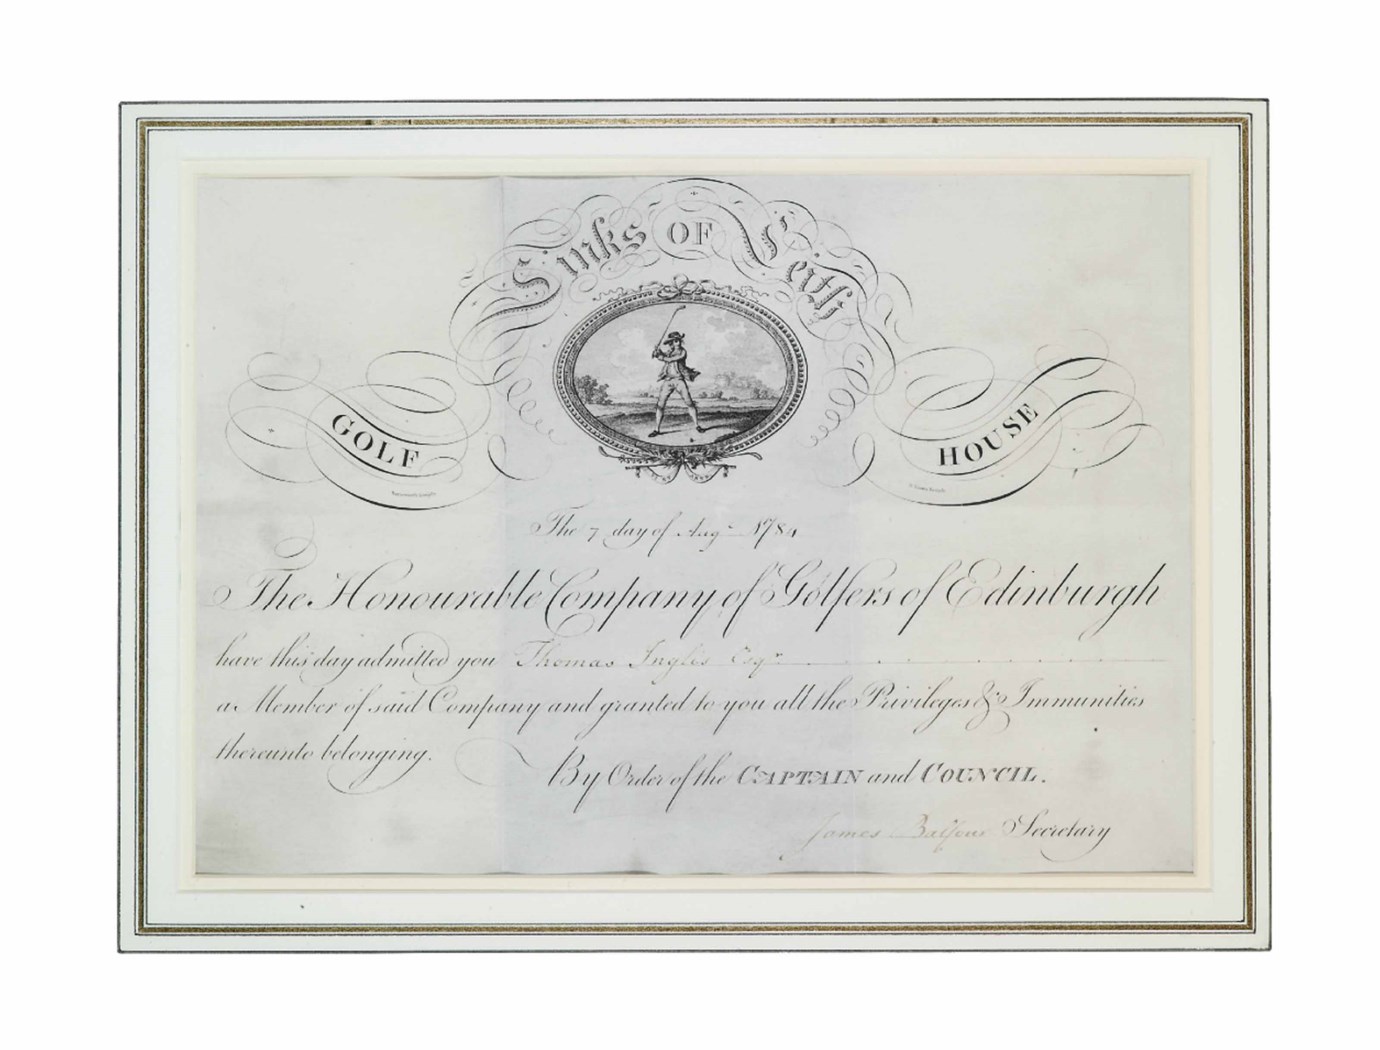 Links OF Leith
GOLF HOUSE
The 7 day of Augt 1784
The Honourable Company of Golfers of Edinburgh
have this day admitted you Thomas Inglis Esqr
a Member of said Company and granted to you all the Privileges & Immunities
thereunto belonging.
By Order of the CAPTAIN and COUNCIL.
James Balfour Secretary